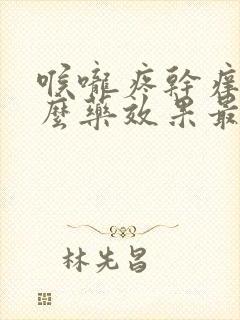 喉嚨疼幹癢
麼藥效果最
林先昌